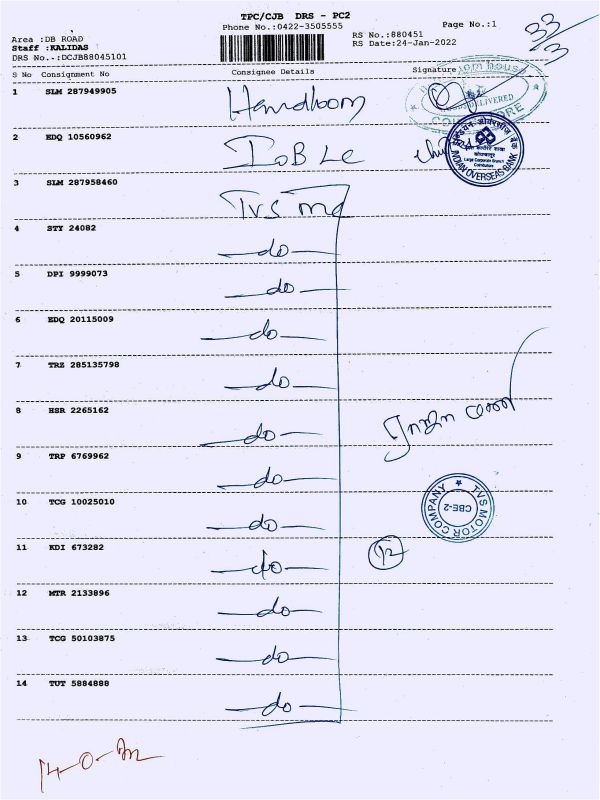 TPC/CJB DRS - PC2
Phone No.:0422-3505555
Page No.:1
33/3
Area :DB ROAD
Staff :KALIDAS
DRS No..:DCJB88045101
RS No.:880451
RS Date:24-Jan-2022
S No Consignment No Consignee Details Signature
1 SLM 287949905 Handloom
DELIVERED
2 EDQ 10560962 IOB LC
INDIAN OVERSEAS BANK
Large Corporate Branch
Coimbatore
3 SLM 287958460 TVS mo
4 STY 24082 -do-
5 DPI 9999073 -do-
6 EDQ 20115009 -do-
7 TRZ 285135798 -do-
8 HSR 2265162 -do-
9 TRP 6769962 -do-
10 TCG 10025010 -do-
TVS MOTOR COMPANY
CBE-2
11 KDI 673282 -do- 12
12 MTR 2133896 -do-
13 TCG 50103875 -do-
14 TUT 5884888 -do-